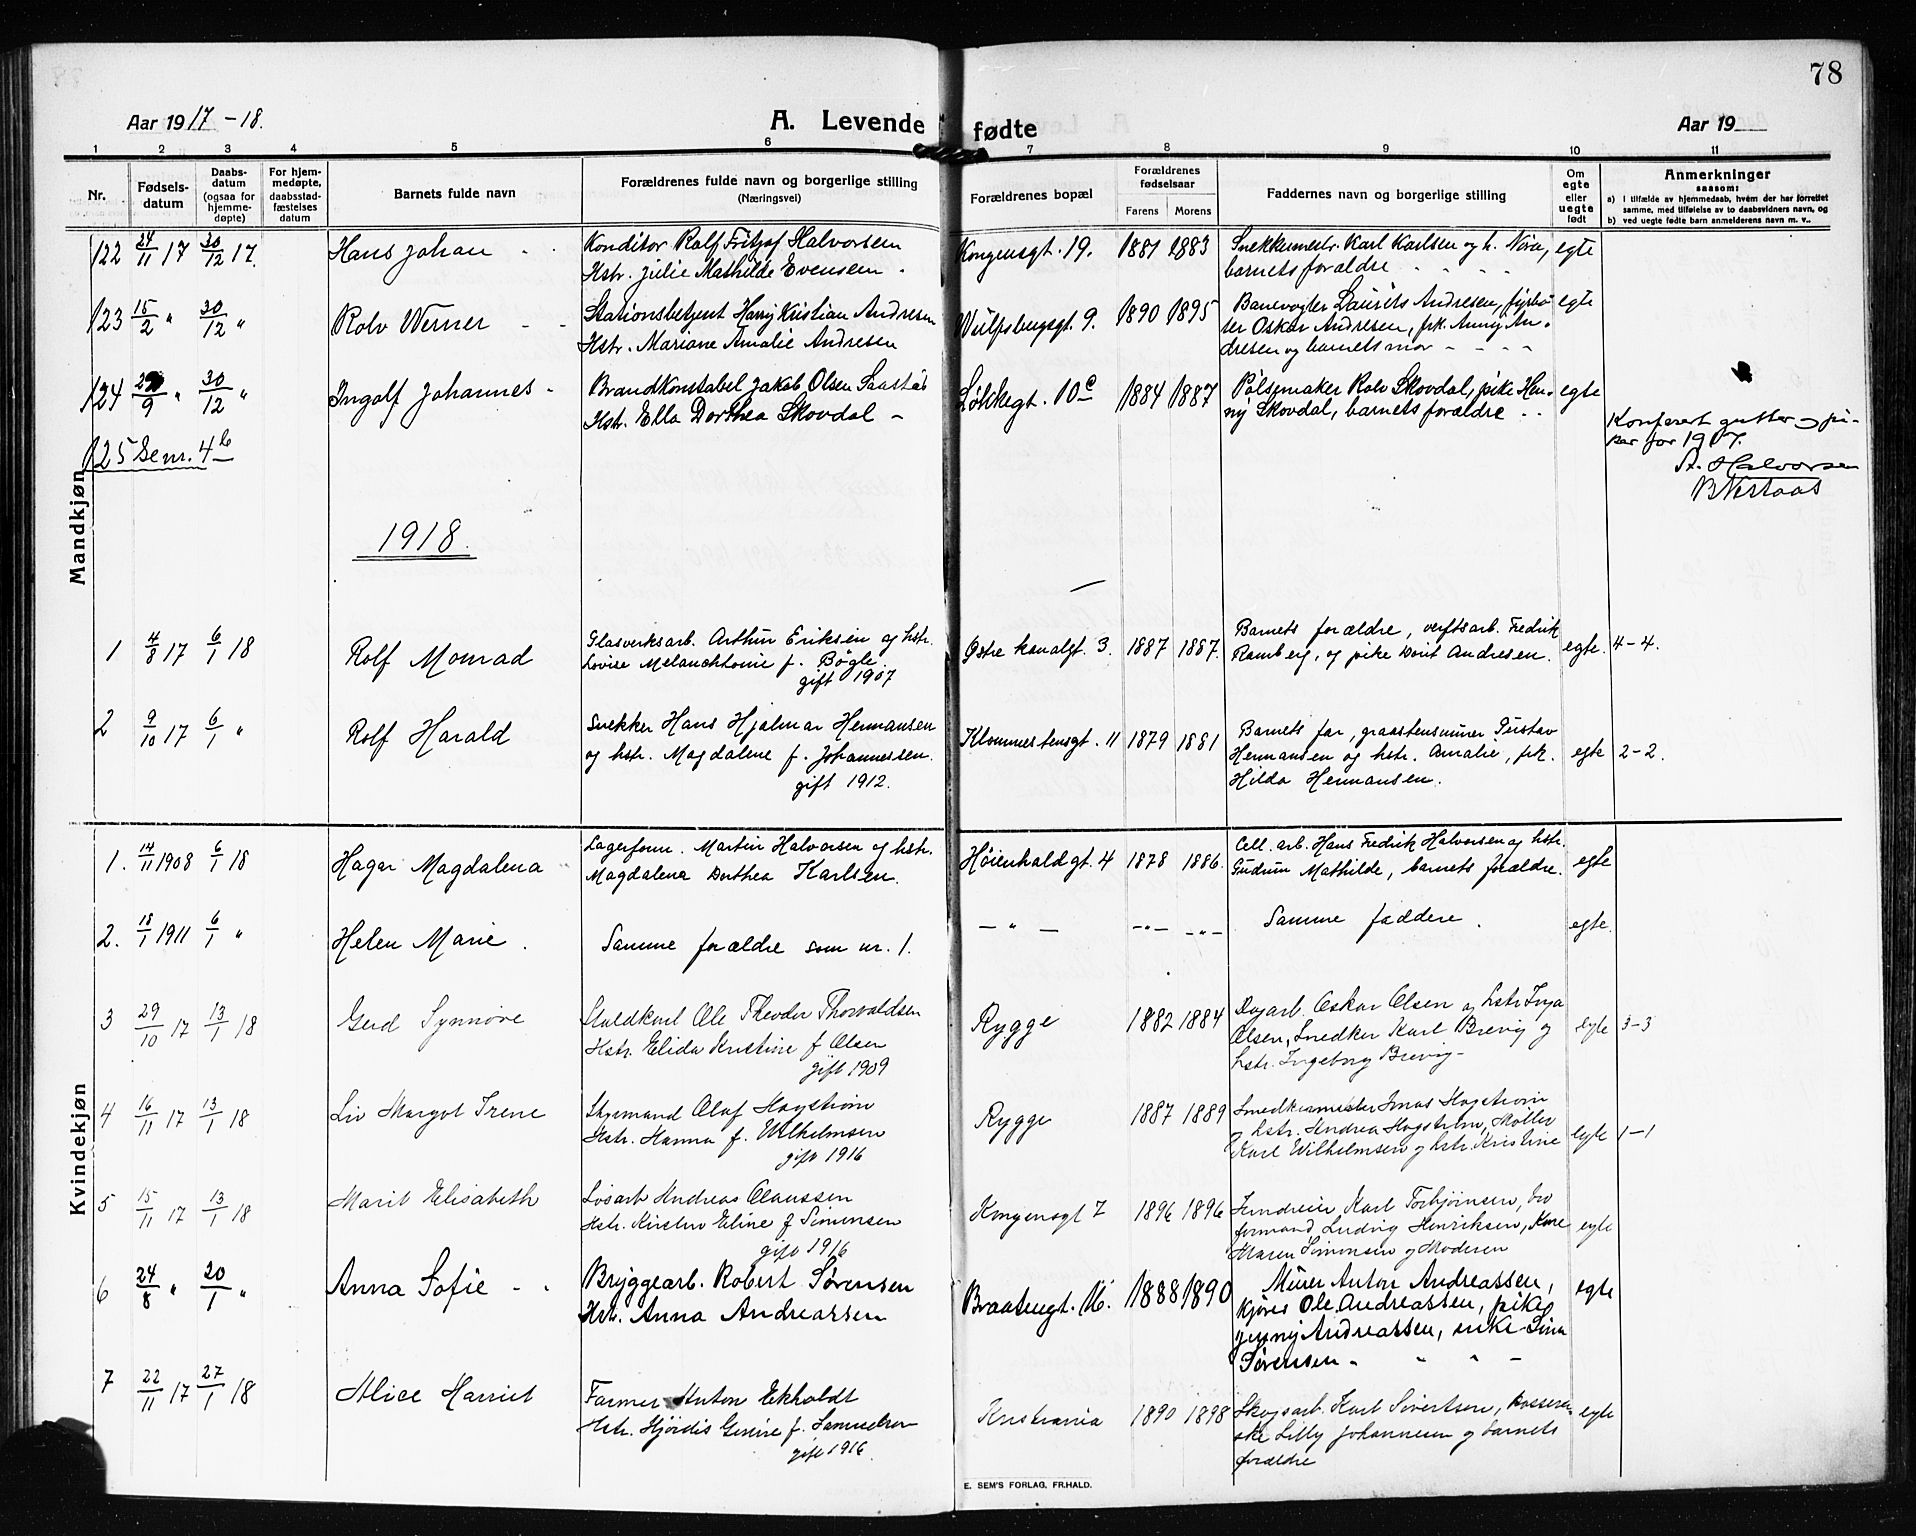 78
Aar 1917-18.
A. Levende fødte
Aar 19
1 2 3 4 5 6 7 8 9 10 11
Nr.
Fødsels-
datum
Daabs-
datum
(ogsaa for
hjemme-
døpte)
For hjem-
medøpte,
daabsstad-
fæstelses
datum
Barnets fulde navn
Forældrenes fulde navn og borgerlige stilling
(Næringsvei)
Forældrenes bopæl
Forældrenes
fødselsaar
Farens Morens
Faddernes navn og borgerlige stilling
Om
egte
eller
uegte
født
Anmerkninger
saasom:
a) I tilfælde av hjemmedaab, hvem der har forrettet
samme, med tilføielse av to daabsvidners navn, og
b) ved uegte fødte barn anmelderens navn m. v..
Mandkjøn
122 24/11 17 30/12 17. Hans Johan
Konditor Rolf Fritjof Halvorsen
Hstr. Julie Mathilde Evensen.
Kongensgt. 19. 1881 1883
Snekkermestr. Karl Karlsen og h. Nora,
barnets forældre
egte
123 15/2 " 30/12 " Rolv Werner
Stationsbetjent Harry Kristian Andresen
Hstr. Mariane Amalie Andresen
Wulfsbergsgt. 9. 1890 1895
Banevogter Laurits Andresen, fyrbø-
ter Oskar Andresen, frk. Anny An-
dresen og barnets mor
egte
124 /9 " 30/12 " Ingolf Johannes
Brandkonstabel Jakob Olsen Saastad
Hstr. Ella Dorthea Skovdal
Løkkegt. 10c 1884 1887
Pølsemaker Rolv Skovdal, pike Hen-
ny Skovdal, barnets forældre
egte
125 Se nr. 4b
Konferert gutter og pi-
ker for 1917.
A. Halvorsen
1918.
1 4/8 17 6/1 18 Rolf Monrad
Glasverksarb. Arthur Eriksen og hstr.
Lovise Melanchtonie f. Bøgle.
gift 1907
Østre kanalgt. 3. 1887 1887.
Barnets forældre, verftsarb. Fredrik
Ramberg, og pike Dorit Andresen.
egte. 4-4.
2 9/10 17 6/1 " Rolf Harald
Snekker Hans Hjalmar Hermansen
og hstr. Magdalene f. Johannessen.
gift 1912.
Klommestensgt. 11 1879 1881
Barnets far, graastensminer Gustav
Hermansen og hstr. Amalie, frk.
Hilda Hermansen.
egte 2-2.
Kvindekjøn
1. 14/11 1908 6/1 18 Hagar Magdalena
Lagerform. Martin Halvorsen og hstr.
Magdalena Dorthea Karlsen.
Høienhaldgt. 4 1878 1886.
Cell. arb. Hans Fredrik Halvorsen og hstr.
Gudrun Mathilde, barnets forældre.
egte
2. 18/1 1911 6/1 " Helen Marie.
Samme forældre som nr. 1.
- " - - " - - " -
Samme faddere.
egte.
3 29/10 17 13/1 18 Gerd Synnøve
Staldkarl Ole Theodor Thorvaldsen
Hstr. Elida Kristine f Olsen
gift 1909
Rygge 1882 1884
Dagarb. Oskar Olsen og hstr Inga
Olsen, Snedker Karl Brevig og
hstr. Ingeborg Brevig-
egte 3-3
4 16/11 17 13/1 18 Liv Margot Irene
Styrmand Olaf Hagstrøm
Hstr. Hanna f. Wilhelmsen
gift 1916
Rygge 1887 1889
Snedkermester Jonas Hagstrøm
og hstr. Andrea Hagstrøm, Møller
Karl Wilhelmsen og hstr. Kristine
egte 1-1
5 15/11 17 13/1 18 Marit Elisabeth
Løsarb Andreas Claussen
Hstr. Kirsten Eline f Simonsen
gift 1916
Kongensgt 7 1896 1896
Karl Torbjørnsen,
formand Ludvig Henriksen, Kone
Maren Simonsen og Moderen
egte
6 24/8 " 20/1 " Anna Sofie
Bryggearb. Robert Sørensen
Hstr. Anna Andreassen
Braatengt. 16. 1888 1890
Murer Anton Andreassen,
kjører Ole Andreassen, pike
Jenny Andreassen, enke Lina
Sørensen
egte
7 22/11 17 27/1 18 Alice Harriet
Farmer Anton Ekholdt
Hstr. Hjørdis Genine f. Samuelsen
gift 1916
Kristiania 1890 1898
Skogsarb. Karl Sivertsen,
Lilly Johannesen og barnets
forældre
egte
E. SEM'S FORLAG, FR.HALD.